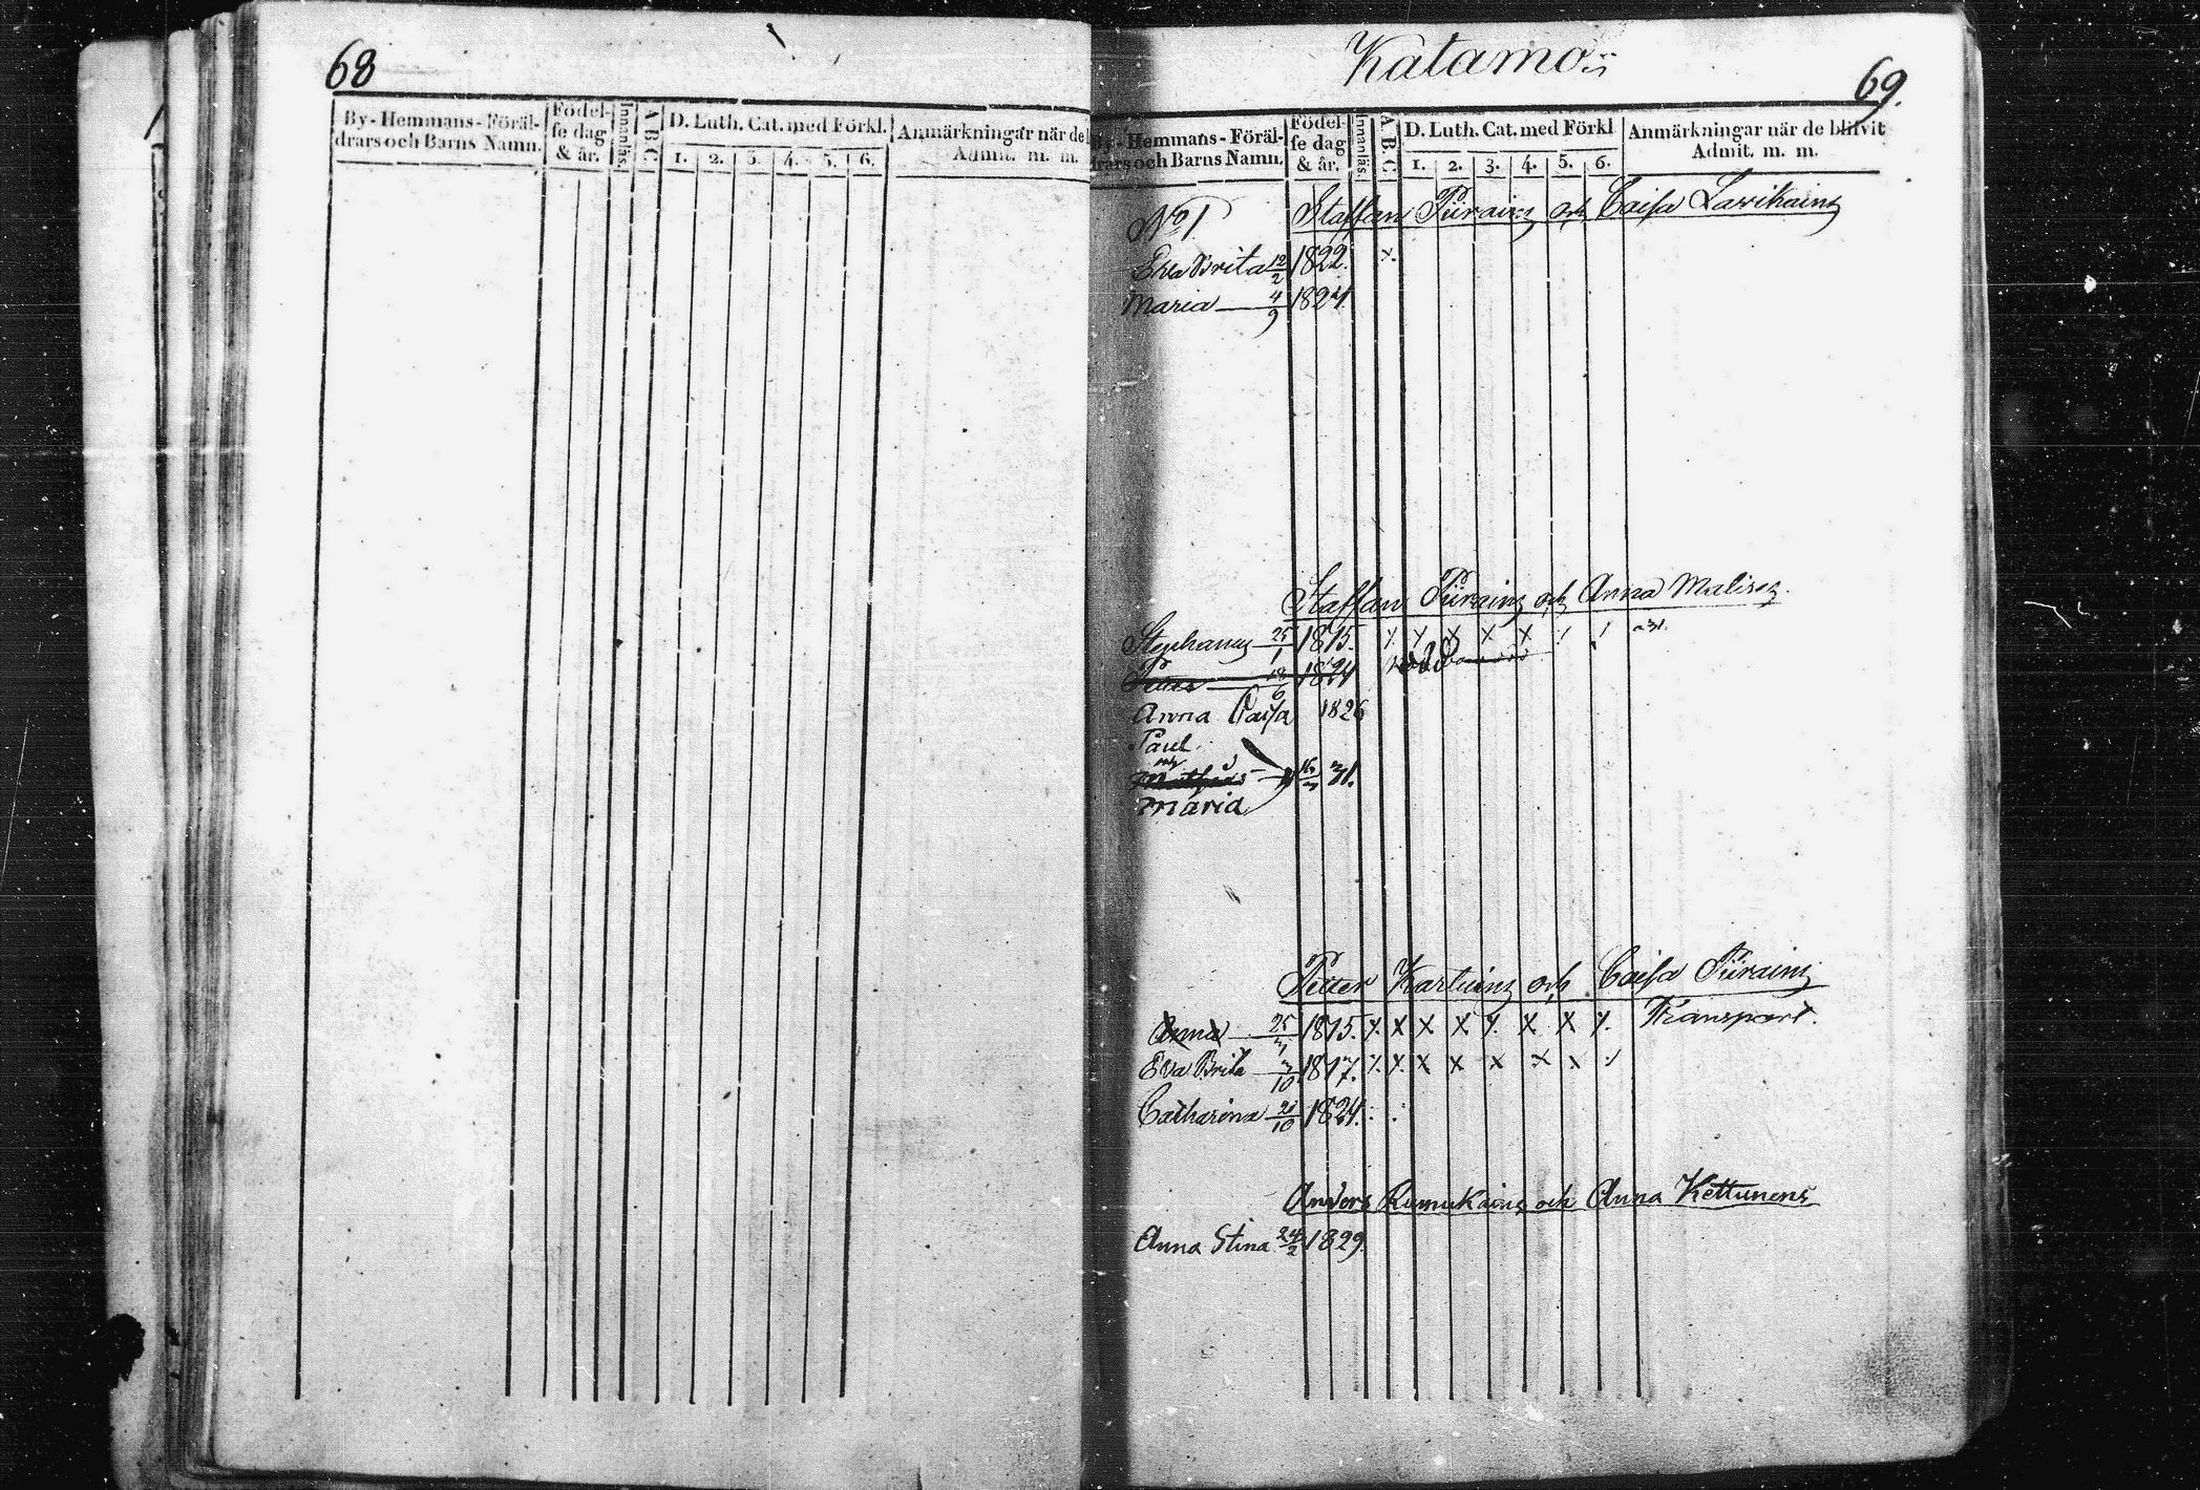 68
By-Hemmans-Föräl-
drars och Barns Namn.
Födel-
se dag
& år.
Innanläs.
A B C
D. Luth. Cat. med Förkl.
1. 2. 3. 4. 5. 6.
Anmärkningar när de
Admit. m. m.
Katamo
69.
By-Hemmans-Föräl-
drars och Barns Namn.
Födel-
se dag
& år.
Innanläs.
A B C
D. Luth. Cat. med Förkl
1. 2. 3. 4. 5. 6.
Anmärkningar när de blifvit
Admit. m. m.
No 1 Staffan Pürainz och Caisa Lavikainz
Eva Brita 12/2 1822. x
Maria 4/9 1824.
Staffan Pürainz och Anna Malisez
Stephanus 25/1 1815. x x x x x
18/6 1824
Anna Caisa 1826
Paul
Mathias 16 31.
Maria
Petter Karhuinz och Caisa Pürainz
Anna 25 1815. x x x x x x x x Transport.
Eva Brita /10 1817. x x x x x x x
Catharina 20/10 1824.
Anders Romukainz och Anna Kettunens
Anna Stina 24/2 1829.